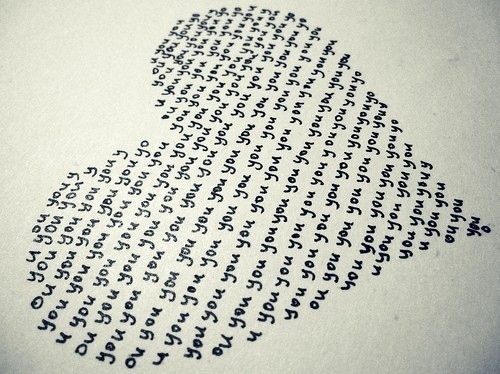 u you you y
you you you y
ou you you you y
you you you you you yo
u you you you you you you you you you you
ou you you you you you you you you you you
you you you you you you you you you you
ou you you you you you you you you you you
u you you you you you you you you you you
you you you you you you you you you you
ou you you you you you you you you you
u you you you you you you you you
ou you you you you you yo
you you you you you
u you you you you
you you you y
u you you
ou you
you
o